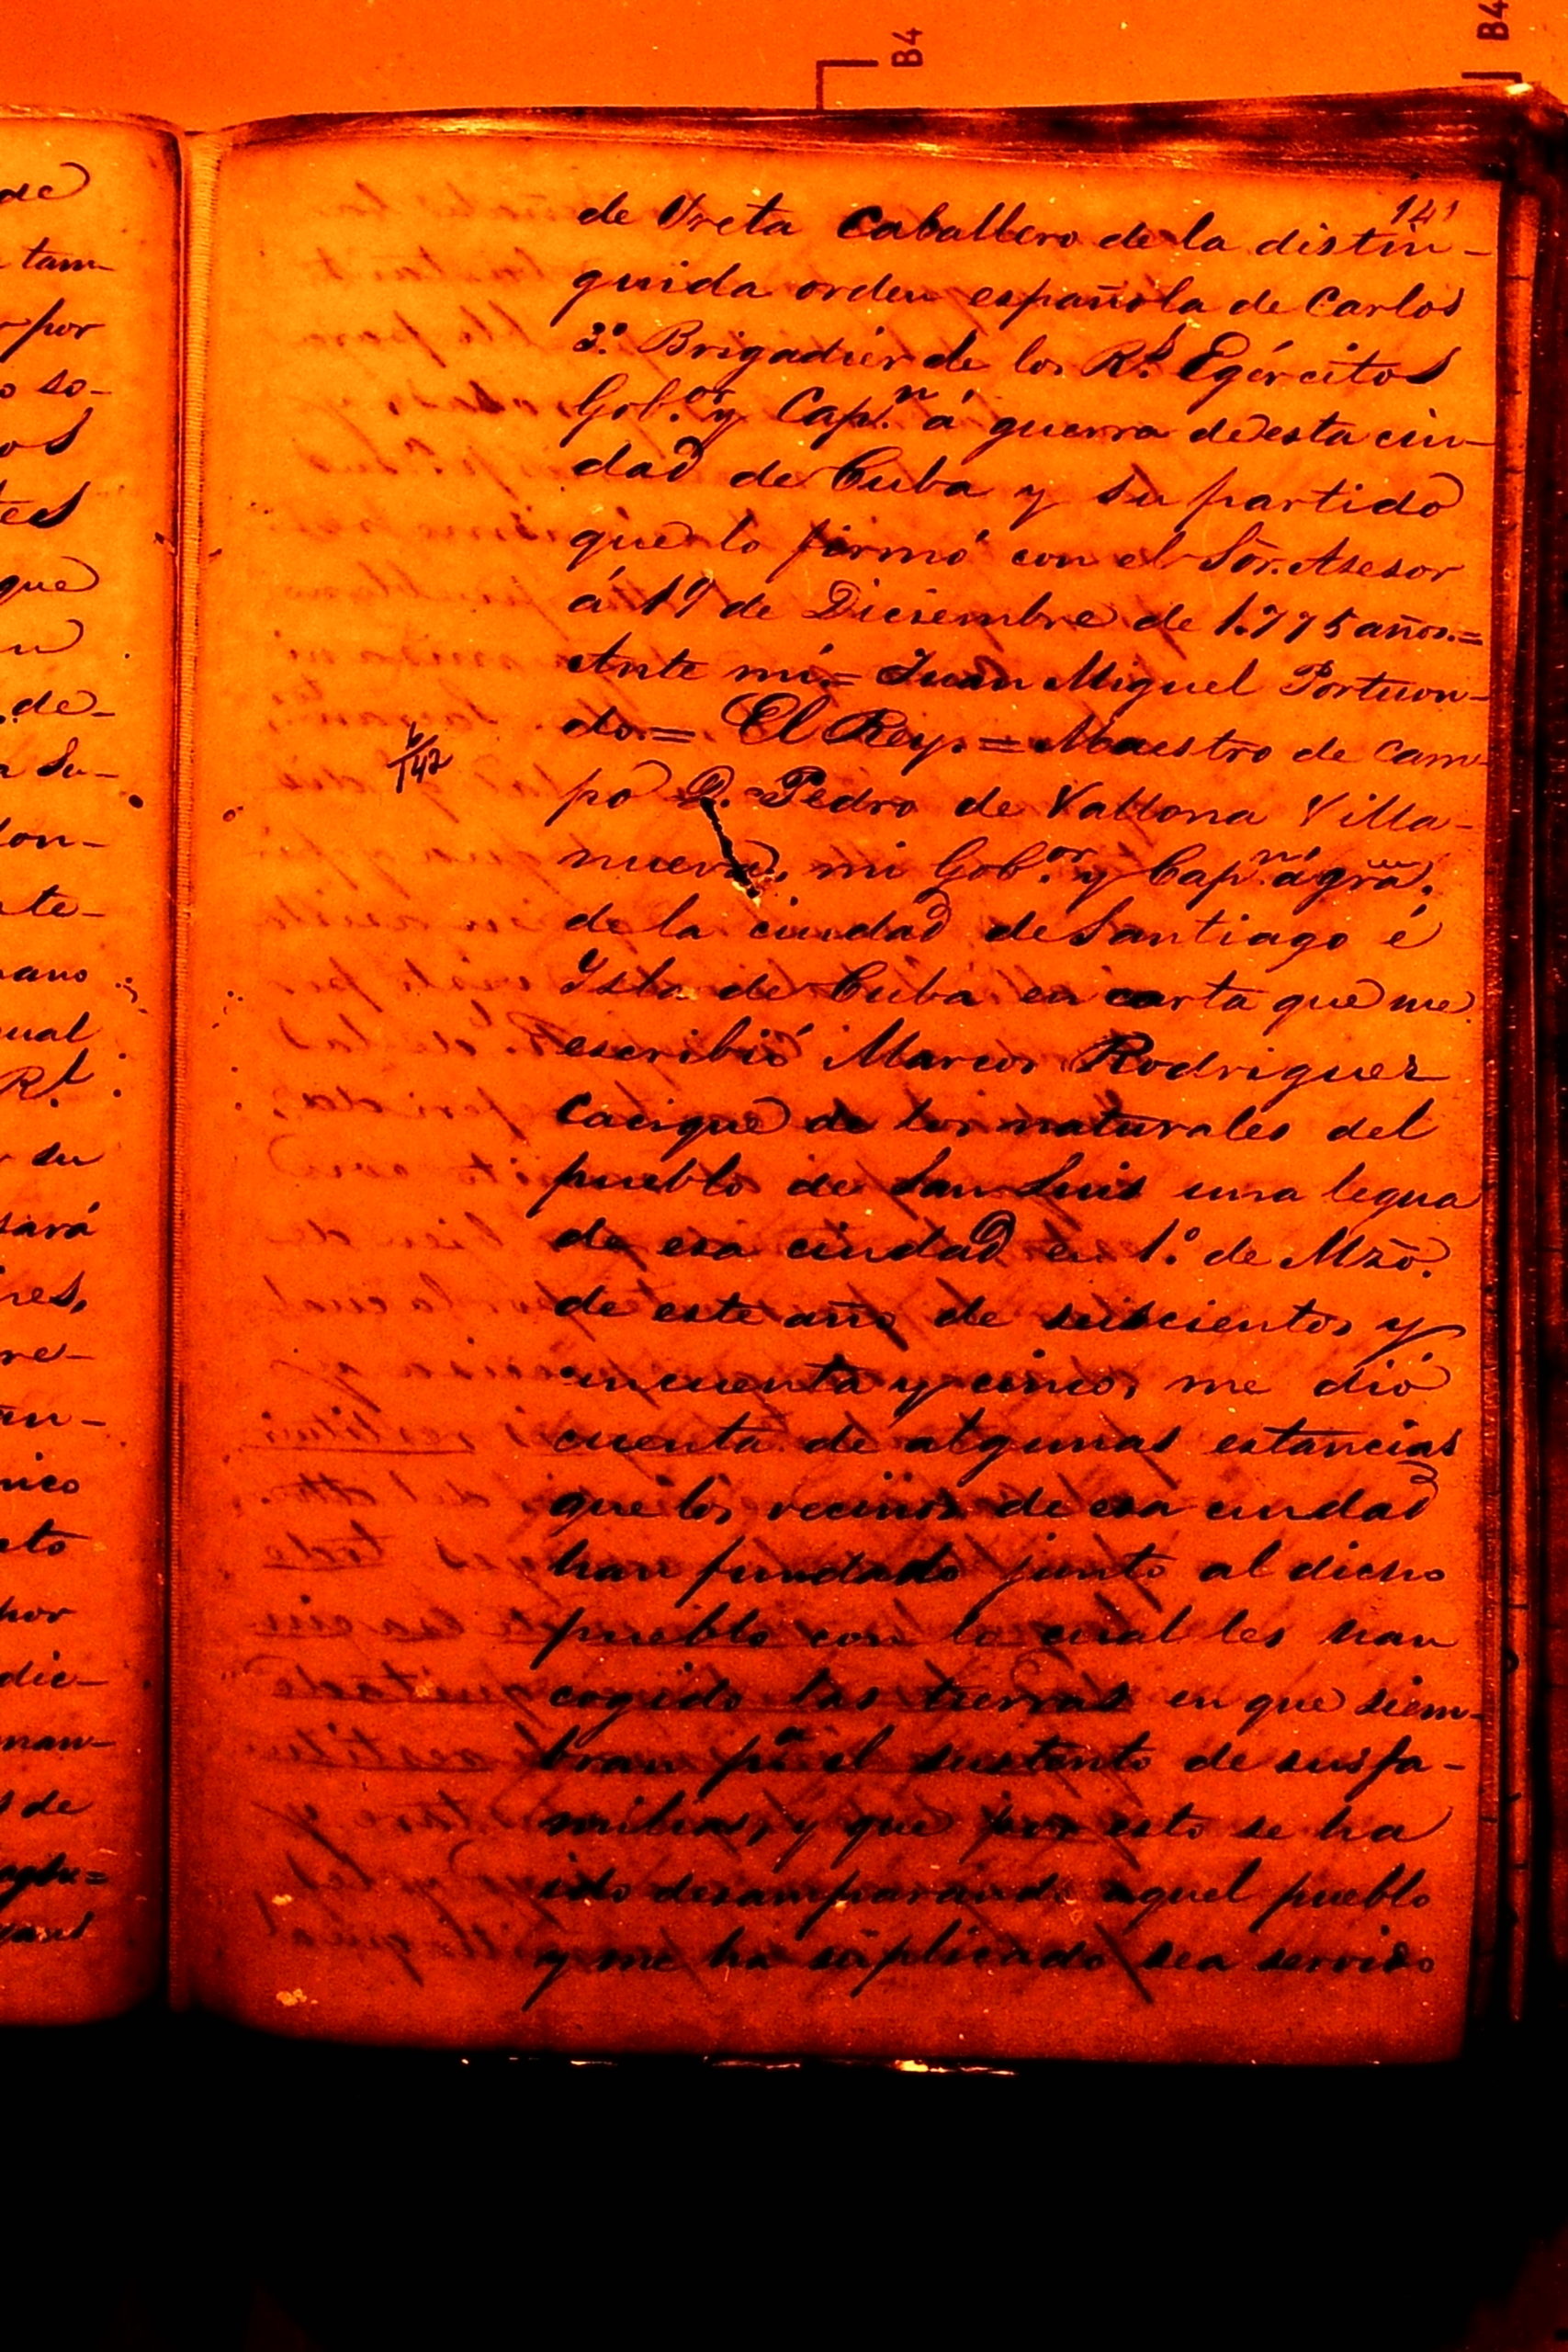 B4
B4
141
de Vreta Caballero de la distin-
guida orden española de Carlos
3.º Brigadier de los R.s Egércitos
Gob.or y Cap.n á guerra de esta ciu-
dad de Cuba y su partido
que lo firmó con el Sor. Asesor
á 19 de Diciembre de 1.775 años.=
Ante mí.= Juan Miguel Portuon-
do.= El Rey.= Maestro de cam-
6/142
po D. Pedro de Vallona Villa-
nueva, mi Gob.or y Cap.n á gra.
de la ciudad de Santiago é
Ysla de Cuba en carta que me
escribió Marcos Rodriguez
Cacique de los naturales del
pueblo de San Luis una legua
de esa ciudad en 1.º de Mzo.
de este año de seiscientos y
cincuenta y cinco, me dió
cuenta de algunas estancias
que los vecinos de esa ciudad
han fundado junto al dicho
pueblo con lo cual les han
cogido las tierras en que siem-
bran p.a el sustento de sus fa-
milias, y que por esto se ha
ido desamparando aquel pueblo
y me ha suplicado sea servido
de
tam-
por
so-
os
tes
que
de-
Su-
lon-
nte-
mano
cual
R.l
su
sará
res,
re-
an-
nico
cto
por
dic-
man-
de